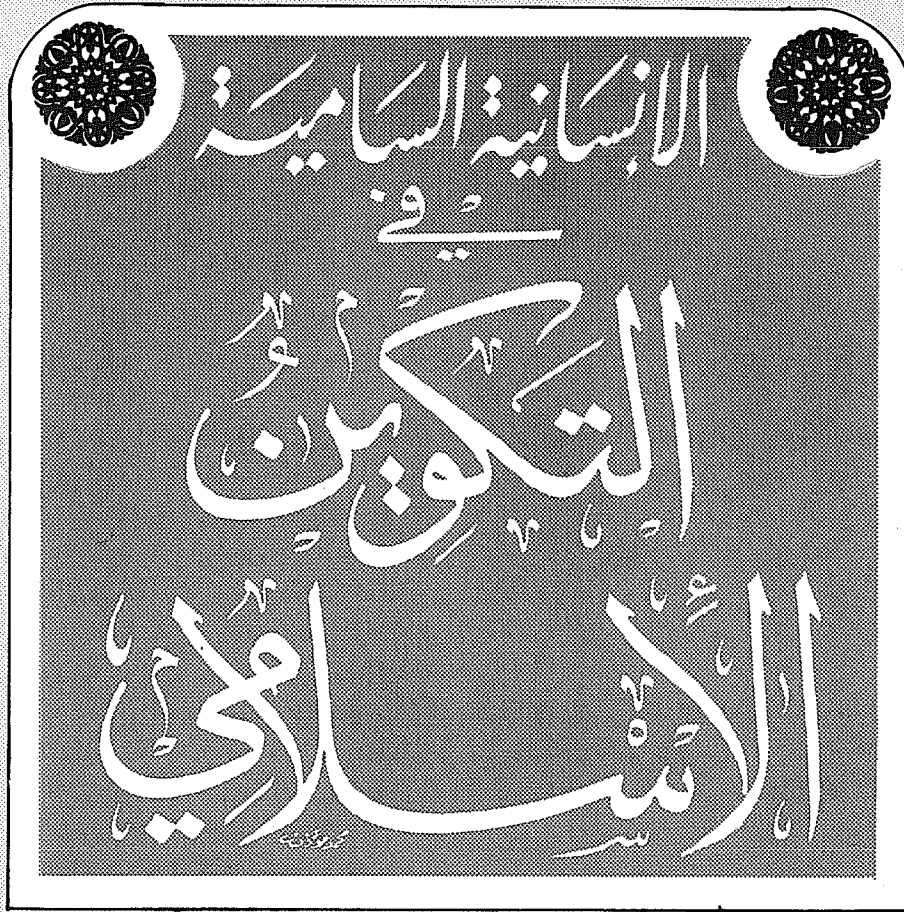 الانسانية السامية
في
التكوين
الأسلامي